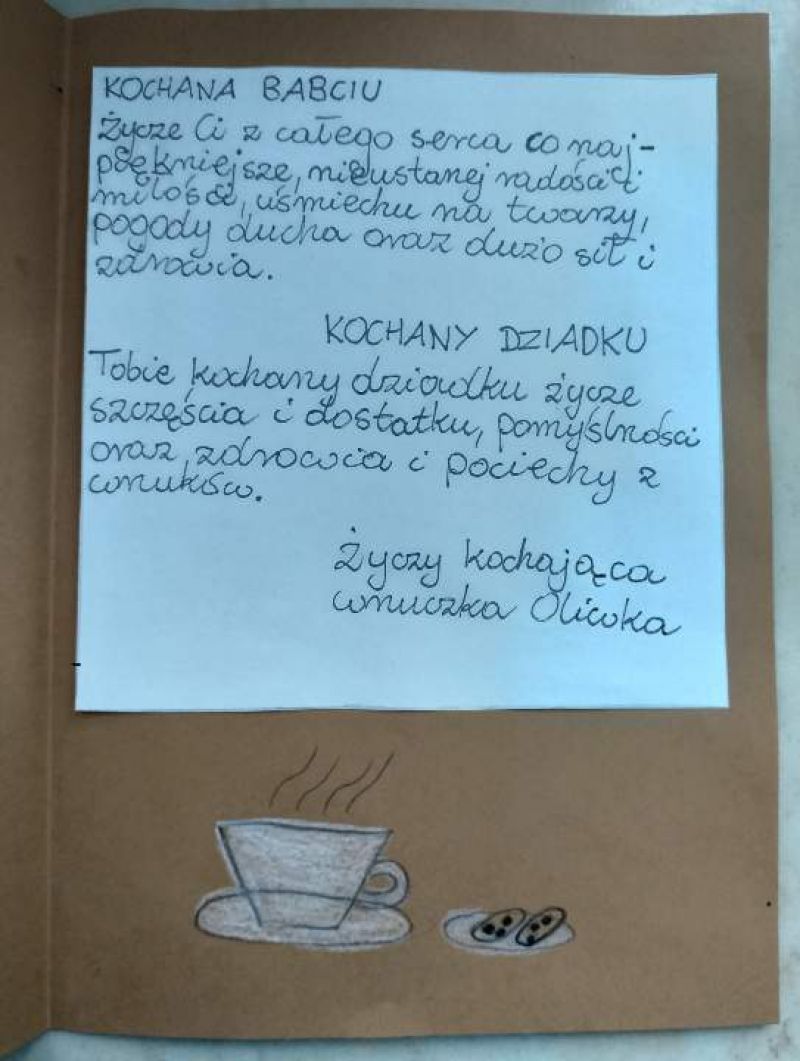 KOCHANA BABCIU
Życze Ci z całego serca co naj-
piękniejsze, nieustanej radości i
miłości, uśmiechu na twarzy,
pogody ducha oraz dużo sił i
zdrowia.
KOCHANY DZIADKU
Tobie kochany dziadku życze
szczęścia i dostatku, pomyślności
oraz zdrowia i pociechy z
wnuków.
Życzy kochająca
wnuczka Oliwka